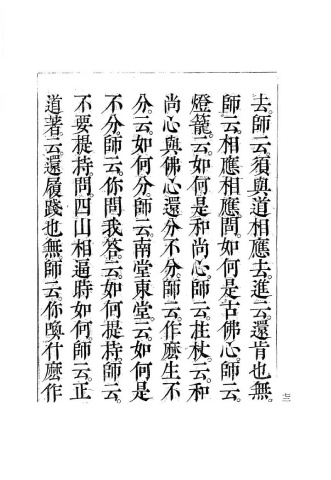 去。師云。須與道相應去。進云。還肯也無。
師云。相應相應。問。如何是古佛心。師云。
燈籠。云。如何是和尚心。師云。拄杖。云。和
尚心與佛心還分不分。師云。作麽生不
分。云。如何分。師云。南堂東堂。云。如何是
不分。師云。你問我答。云。如何提持。師云。
不要提持。問。四山相逼時如何。師云。正
道著。云。還履踐也無。師云。你喚什麽作